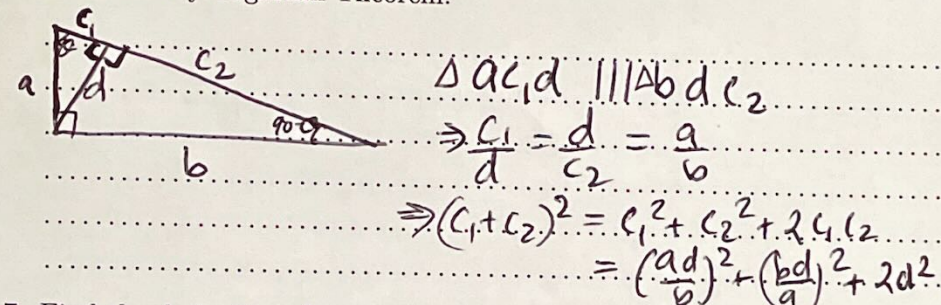 Theorem.
c₁
a
d
c₂
90-θ
b
Δ ac₁d ||| Δbdc₂
⇒ c₁/d = d/c₂ = a/b
⇒ (c₁+c₂)² = c₁² + c₂² + 2c₁c₂
= (ad/b)² + (bd/a)² + 2d²